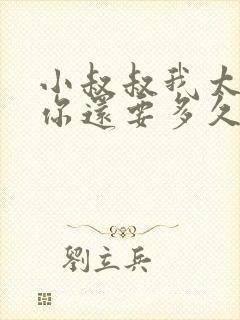 小叔叔我大
你還要多久
劉立兵